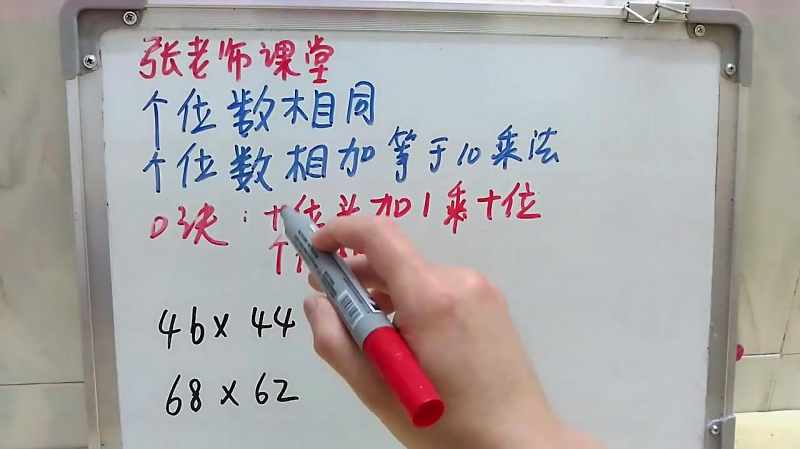 张老师课堂
个位数相同
个位数相加等于10乘法
口诀:十位头加1乘十位
个
46×44
68×62